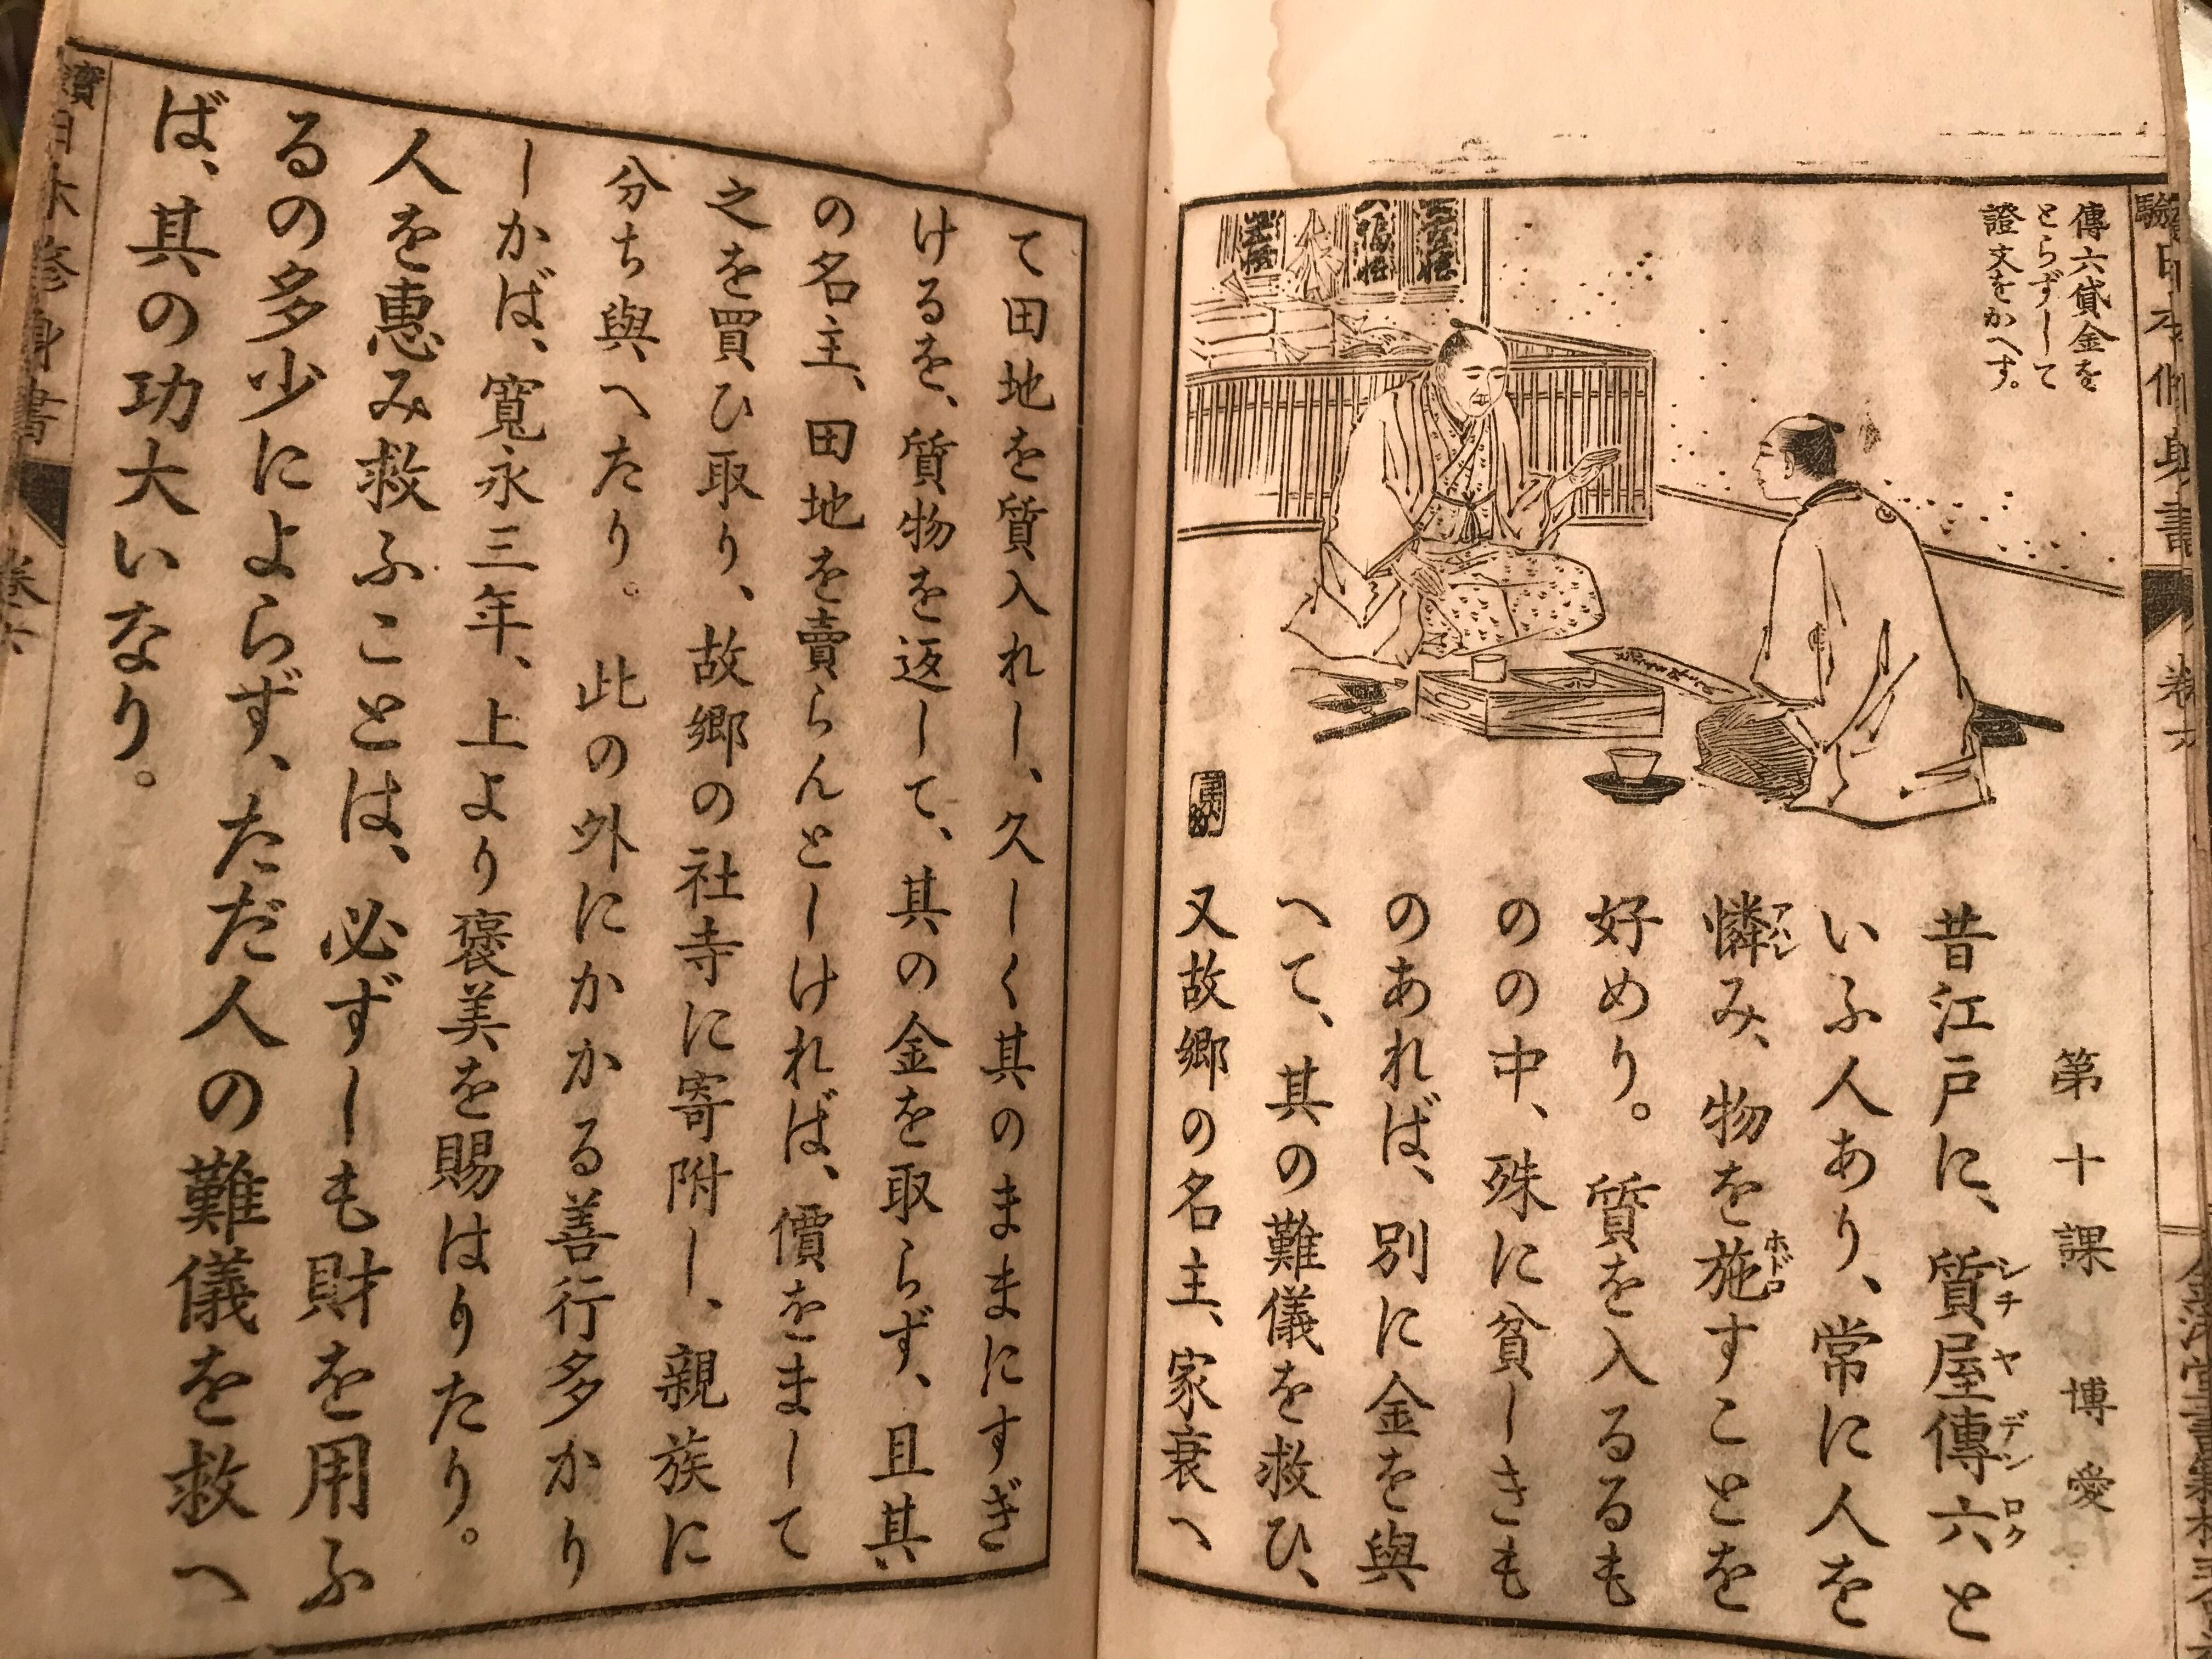 傳六貸金を
とらずして
證文をかへす。
第十課 博愛
昔江戸に、質屋傳六と
シチヤデンロク
いふ人あり、常に人を
憐み、物を施すことを
アハレ
ホドコ
好めり。質を入るるも
のの中、殊に貧しきも
のあれば、別に金を與
へて、其の難儀を救ひ、
又故郷の名主、家衰へ
て田地を質入れし、久しく其のままにすぎ
けるを、質物を返して、其の金を取らず、且其
の名主、田地を賣らんとしければ、價をまして
之を買ひ取り、故郷の社寺に寄附し、親族に
分ち與へたり。此の外にかかる善行多かり
しかば、寛永三年、上より褒美を賜はりたり。
人を惠み救ふことは、必ずしも財を用ふ
るの多少によらず、ただ人の難儀を救へ
ば、其の功大いなり。
日本修身書 卷六